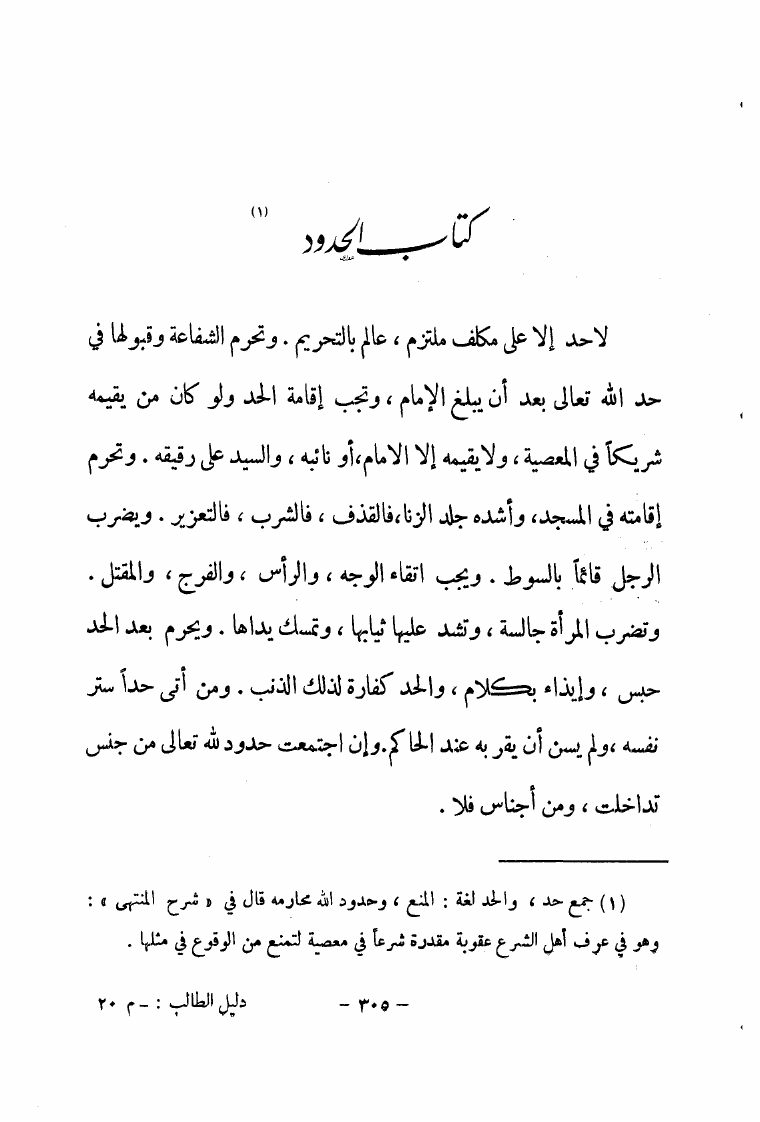 كتاب الحدود (١)
لا حد إلا على مكلف ملتزم ، عالم بالتحريم . وتحرم الشفاعة وقبولها في
حد الله تعالى بعد أن يبلغ الإمام ، وتجب إقامة الحد ولو كان من يقيمه
شريكاً في المعصية ، ولا يقيمه إلا الامام ،أو نائبه ، والسيد على رقيقه . وتحرم
إقامته في المسجد، وأشده جلد الزنا،فالقذف ، فالشرب ، فالتعزير . ويضرب
الرجل قائماً بالسوط . ويجب اتقاء الوجه ، والرأس ، والفرج ، والمقتل .
وتضرب المرأة جالسة ، وتشد عليها ثيابها ، وتمسك يداها . ويحرم بعد الحد
حبس ، وإيذاء بكلام ، والحد كفارة لذلك الذنب . ومن أتى حداً ستر
نفسه ،ولم يسن أن يقر به عند الحاكم.وإن اجتمعت حدود لله تعالى من جنس
تداخلت ، ومن أجناس فلا .
(١) جمع حد ، والحد لغة : المنع ، وحدود الله محارمه قال في « شرح المنتهى » :
وهو في عرف أهل الشرع عقوبة مقدرة شرعاً في معصية لتمنع من الوقوع في مثلها .
– ٣٠٥ – دليل الطالب : – م ٢٠